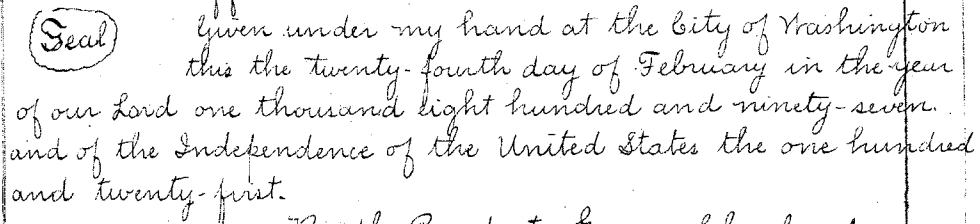 Seal Given under my hand at the City of Washington
this the twenty-fourth day of February in the year
of our Lord one thousand eight hundred and ninety-seven.
and of the Independence of the United States the one hundred
and twenty-first.